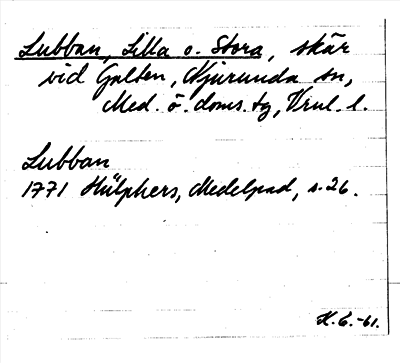 Lubban, Lilla o. Stora, skär
vid Galten, Njurunda sn,
Med. ö. doms. tg, Vrnl. l.
Lubban
1771 Hülphers, Medelpad, s. 26.
K.G.-61.